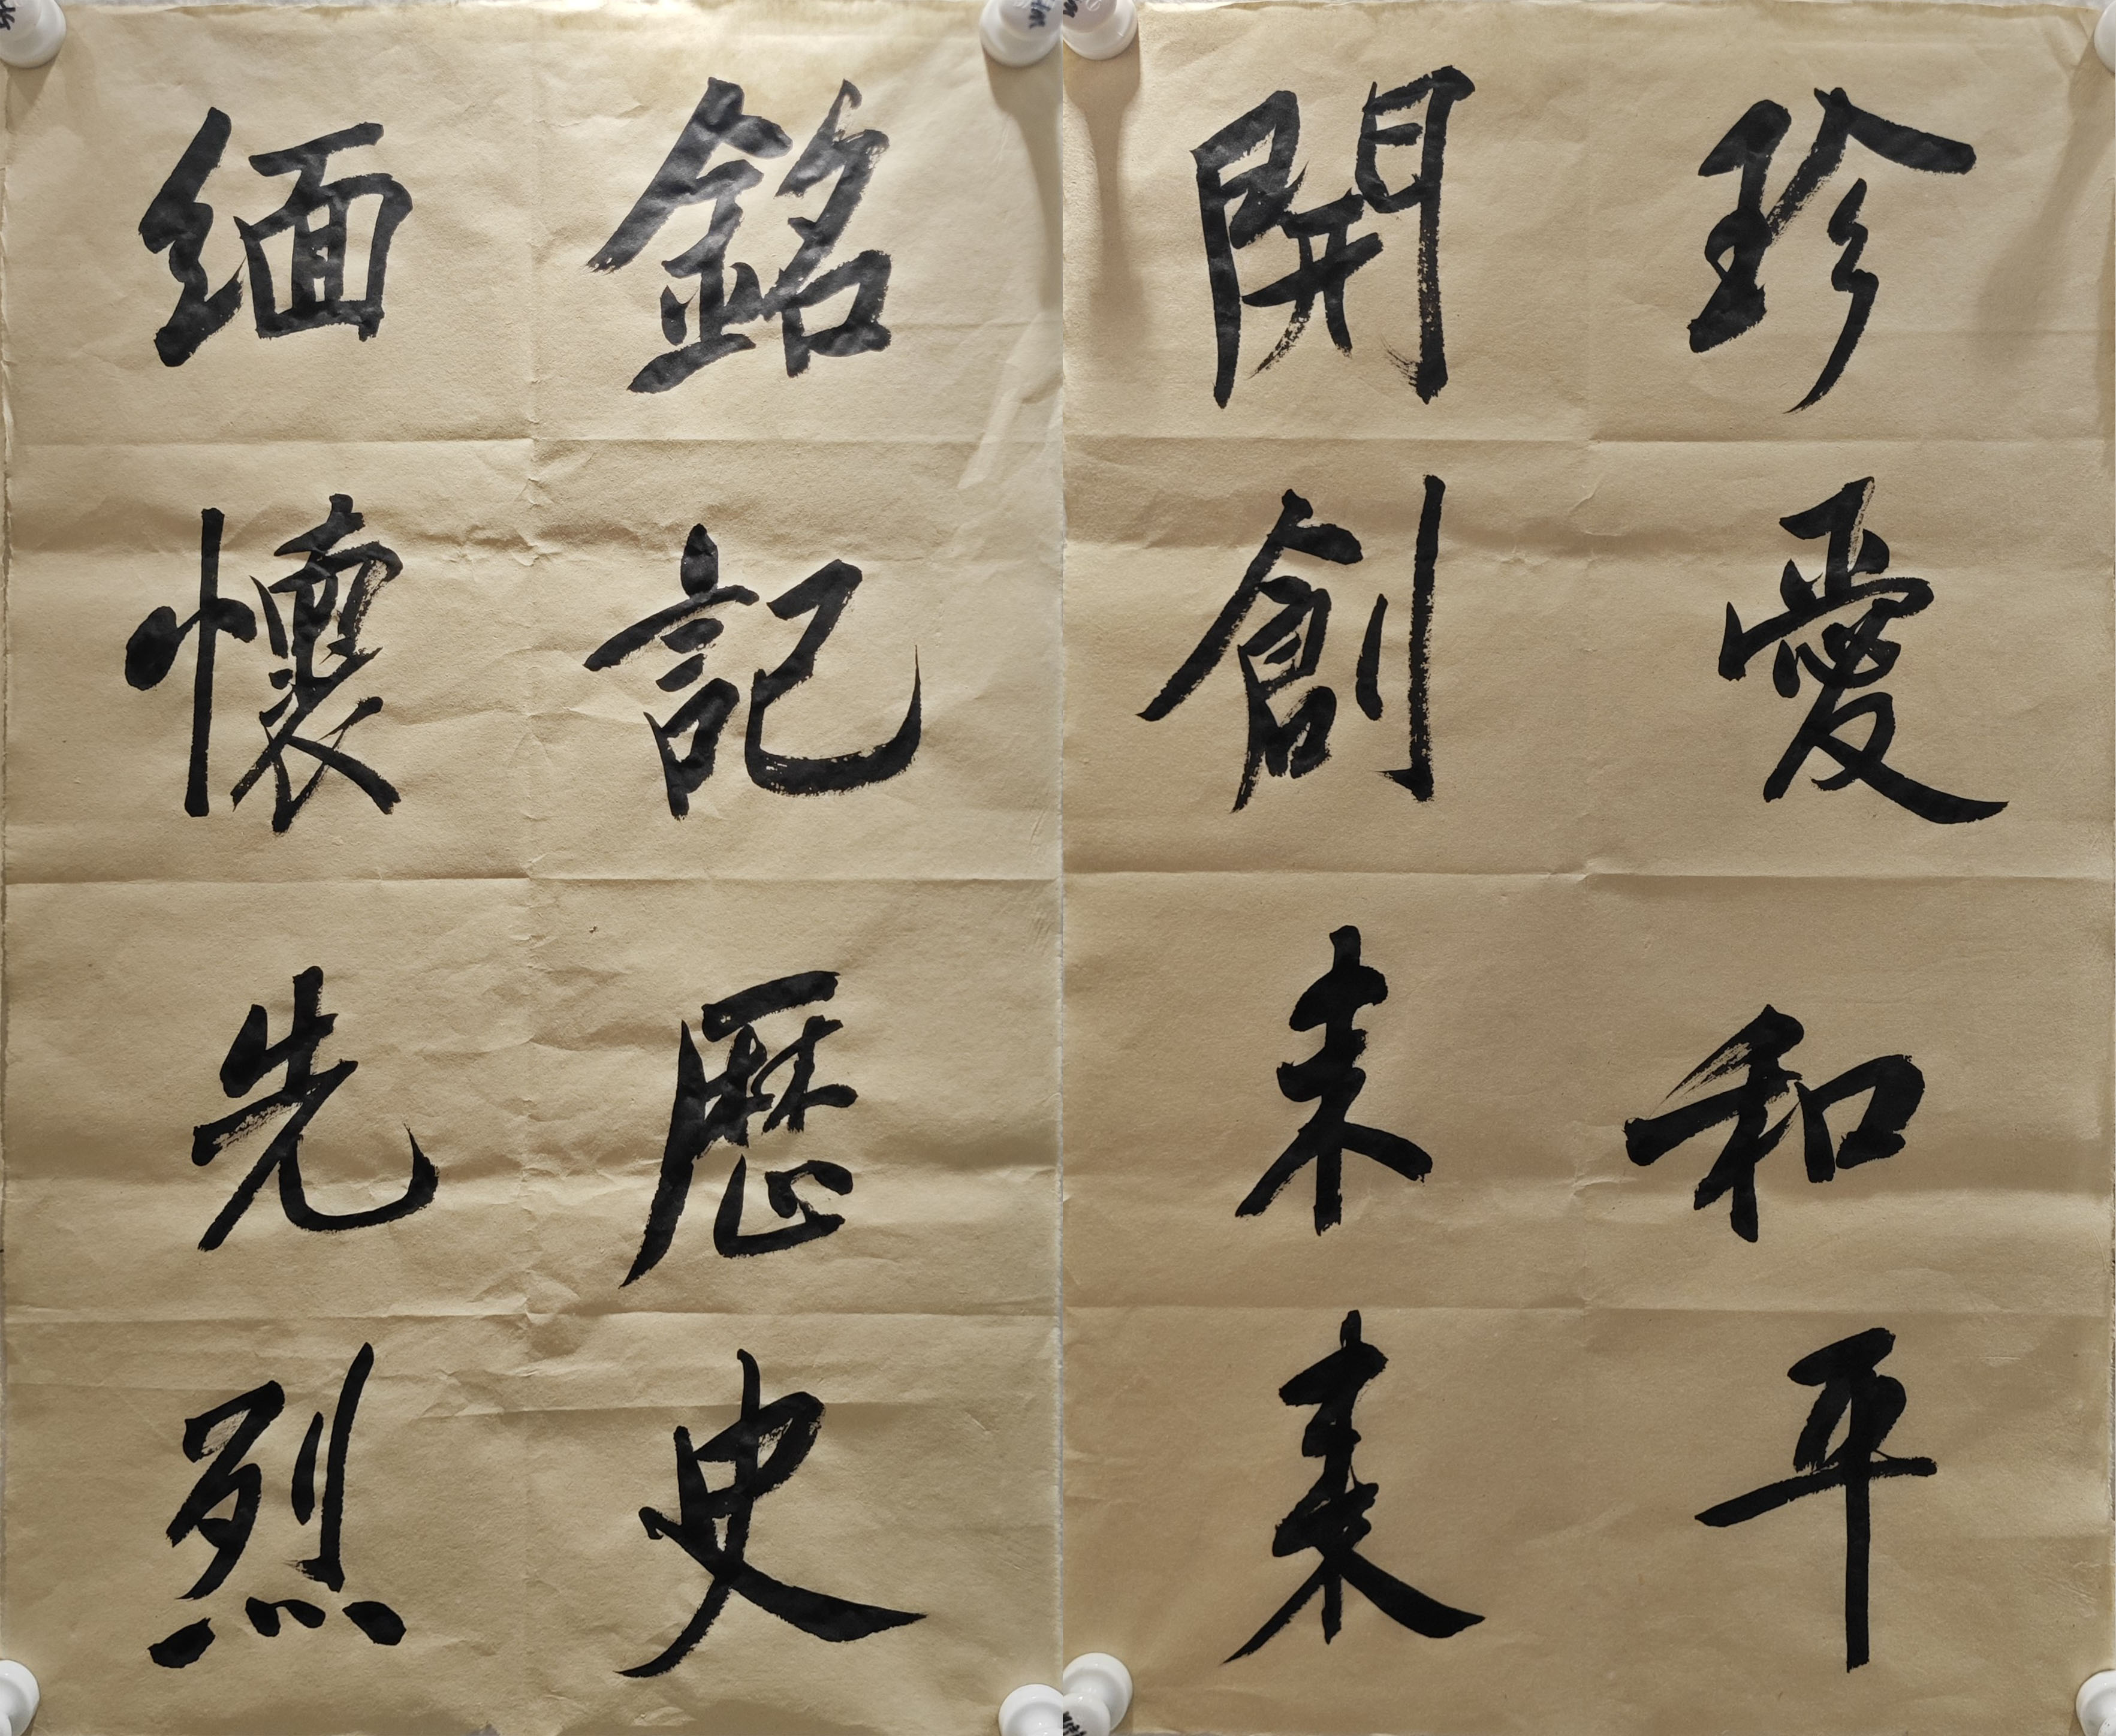 銘記歷史
缅懷先烈
珍愛和平
開創未来